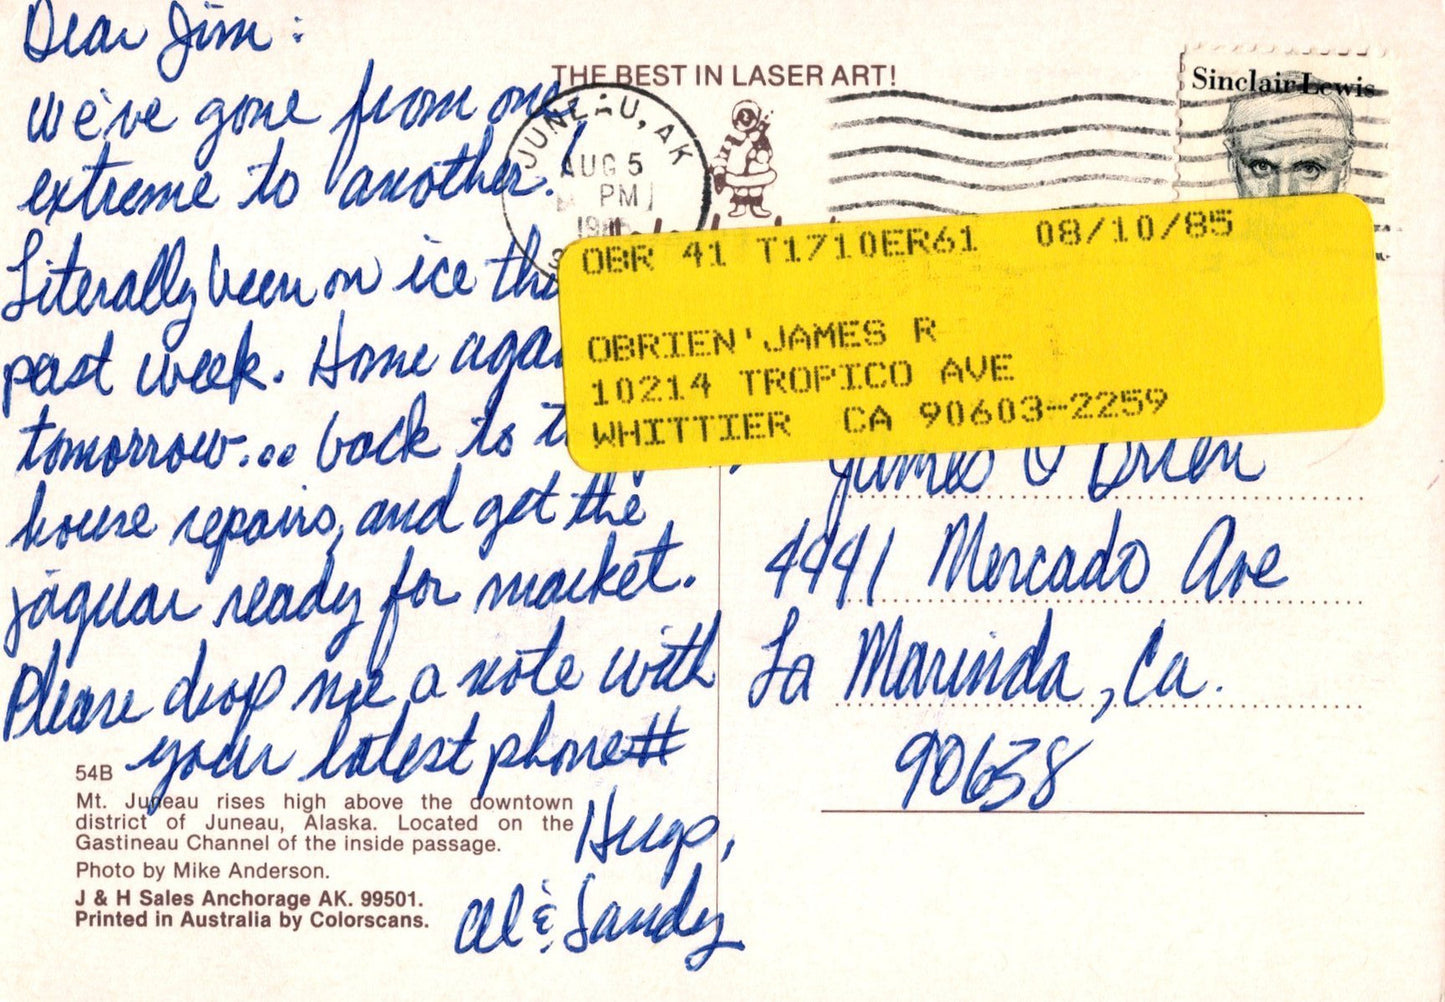 Dear Jim:
We've gone from one
extreme to another!
Literally been on ice
past week. Home
tomorrow... back to
house repairs, and get the
jaguar ready for market.
Please drop me a note with
your latest phone#
Hugs,
Al & Sandy
54B
Mt. Juneau rises high above the downtown
district of Juneau, Alaska. Located on the
Gastineau Channel of the inside passage.
Photo by Mike Anderson.
J & H Sales Anchorage AK. 99501.
Printed in Australia by Colorscans.
THE BEST IN LASER ART!
JUNEAU, AK
AUG 5
PM
Sinclair Lewis
OBR 41 T1710ER61 08/10/85
OBRIEN'JAMES R
10214 TROPICO AVE
WHITTIER CA 90603-2259
James O'Brien
4941 Mercado Ave
La Marinda, Ca.
90638